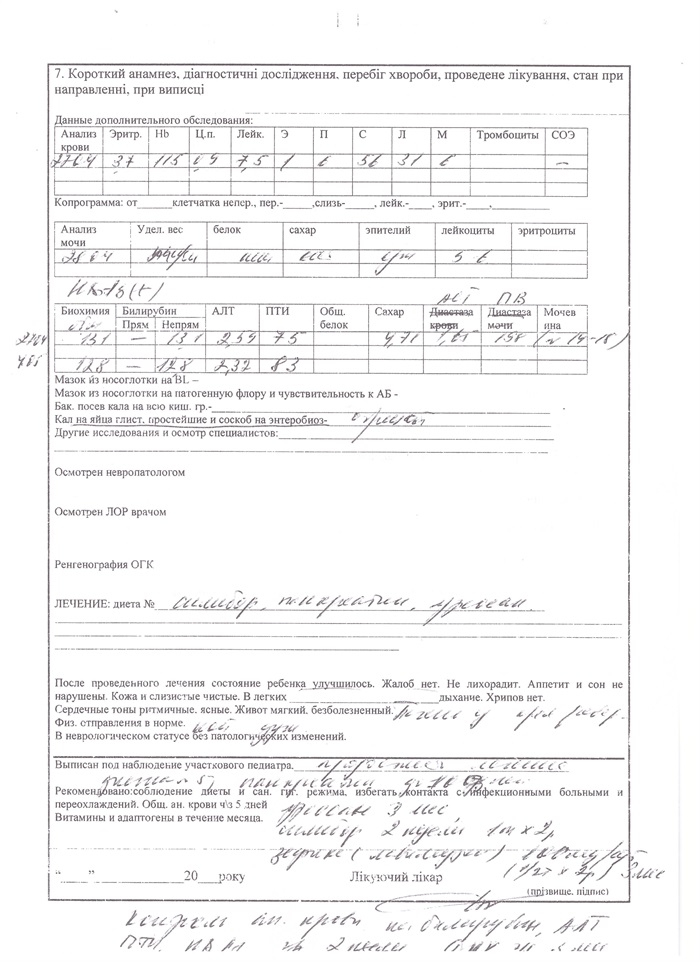 7. Короткий анамнез, діагностичні дослідження, перебіг хвороби, проведене лікування, стан при
направленні, при виписці
Данные дополнительного обследования:
Анализ крови Эритр. Hb Ц.п. Лейк. Э П С Л М Тромбоциты СОЭ
27.04 3,7 115 0,9 7,5 1 6 56 31 6 –
Копрограмма: от______клетчатка непер., пер.-_____,слизь-_____, лейк.-____, эрит.-____,
Анализ мочи Удел. вес белок сахар эпителий лейкоциты эритроциты
28.04
HBsAg (+)
АСТ ПВ
Биохимия Билирубин Прям Непрям АЛТ ПТИ Общ. белок Сахар Диастаза крови Диастаза мочи Мочев ина
27.04 13,1 – 13,1 2,59 75 4,71 158 (N 14-18)
12,8 – 12,8 2,32 83
Мазок из носоглотки на BL –
Мазок из носоглотки на патогенную флору и чувствительность к АБ -
Бак. посев кала на всю киш. гр.-
Кал на яйца глист, простейшие и соскоб на энтеробиоз-
Другие исследования и осмотр специалистов:
Осмотрен невропатологом
Осмотрен ЛОР врачом
Ренгенография ОГК
ЛЕЧЕНИЕ: диета № силибор, панкреатин, урсосан
После проведенного лечения состояние ребенка улучшилось. Жалоб нет. Не лихорадит. Аппетит и сон не
нарушены. Кожа и слизистые чистые. В легких ____________ дыхание. Хрипов нет.
Сердечные тоны ритмичные. ясные. Живот мягкий. безболезненный. Печень у края ребер.
Физ. отправления в норме.
В неврологическом статусе без патологических изменений.
Выписан под наблюдение участкового педиатра.
диета № 5, панкреатин
Рекомендовано:соблюдение диеты и сан. гиг. режима, избегать контакта с инфекционными больными и
переохлаждений. Общ. ан. крови ч\з 5 дней
урсосан 3 мес,
Витамины и адаптогены в течение месяца.
силибор 2 недели 1т х 2р
(1/2т х 2р) 3 мес
“_____” ____________20___року Лікуючий лікар
(прізвище. підпис)
контроль ан. крови на билирубин, АЛТ
ПТИ, 2 недели